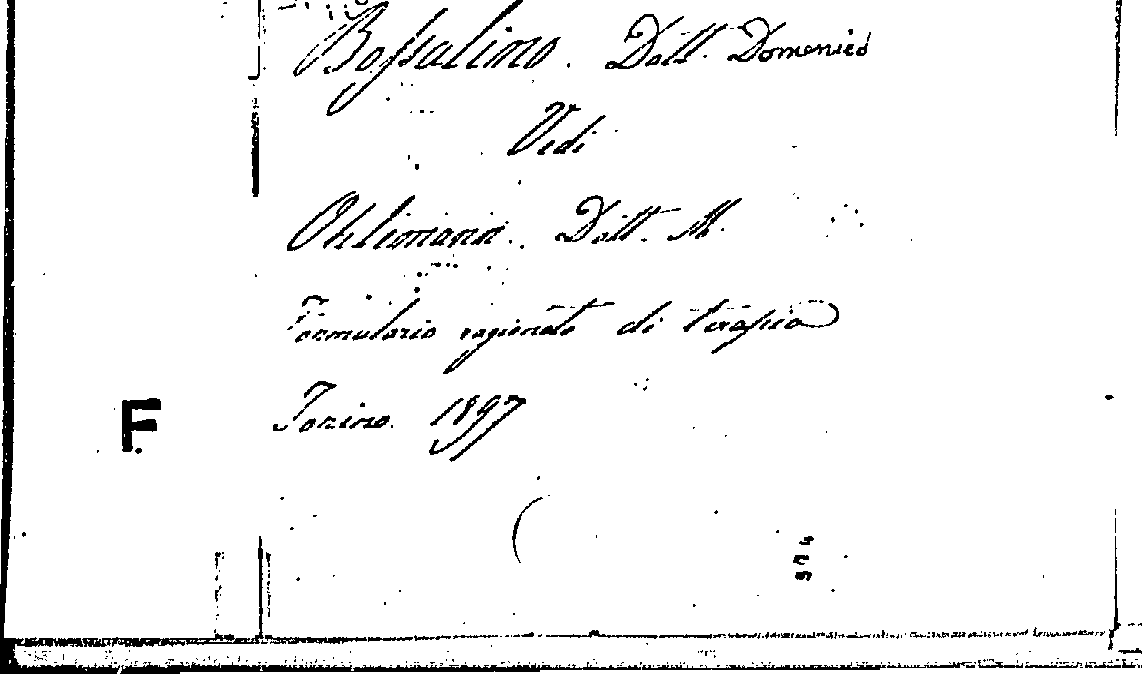 Bossalino. Dott. Domenico
Vedi
Oblimann. Dott. M.
Formulario ragionato di terapia
F
Torino. 1897
974